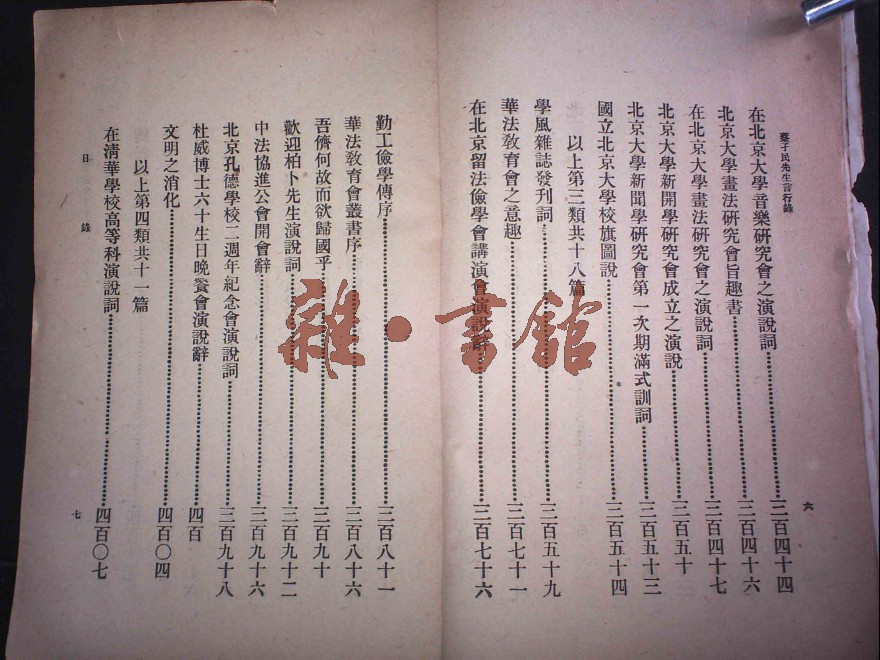 蔡孑民先生言行錄
六
在北京大學音樂研究會之演說詞 三百四十四
北京大學畫法研究會旨趣書 三百四十六
在北京大學畫法研究會之演說詞 三百四十七
北京大學新聞學研究會成立之演說 三百五十
北京大學新聞學研究會第一次期滿式訓詞 三百五十三
國立北京大學校旗圖說 三百五十四
以上第三類共十八篇
學風雜誌發刊詞 三百五十九
華法教育會之意趣 三百七十一
在北京留法儉學會講演會演說辭 三百七十六
勤工儉學傳序 三百八十一
華法教育會叢書序 三百八十六
吾儕何故而欲歸國乎 三百九十
歡迎柏卜先生演說詞 三百九十二
中法協進公會開會辭 三百九十六
北京孔德學校二週年紀念會演說詞 三百九十八
杜威博士六十生日晚餐會演說辭 四百
文明之消化 四百〇四
以上第四類共十一篇
在清華學校高等科演說詞 四百〇七
日錄
七
雜·書舘